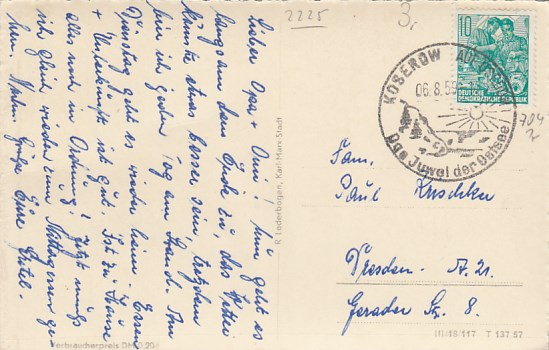 2225
3,
Lieber Opa + Omi! Nun geht es
langsam dem Ende zu, das Wetter
könnte etwas besser sein, trotzdem
bin ich jeden Tag am Strand. Am
Dienstag geht es wieder heim. Essen
+ Unterkünfte ist gut. Ist zu Hause
alles noch in Ordnung? Jetzt muß
ich gleich wieder zum Mittagessen ge-
hen. Viele Grüße Eure
Verbraucherpreis DM 0,20
R. Lederbogen, Karl-Marx-Stadt
10
DEUTSCHE
DEMOKRATISCHE REPUBLIK
KOSEROW AUF
06.8.5
Das Juwel der Ostsee
704
Fam.
Paul
Dresden - A. 21.
Gerader Stg. 8.
III/18/117 T 137.57